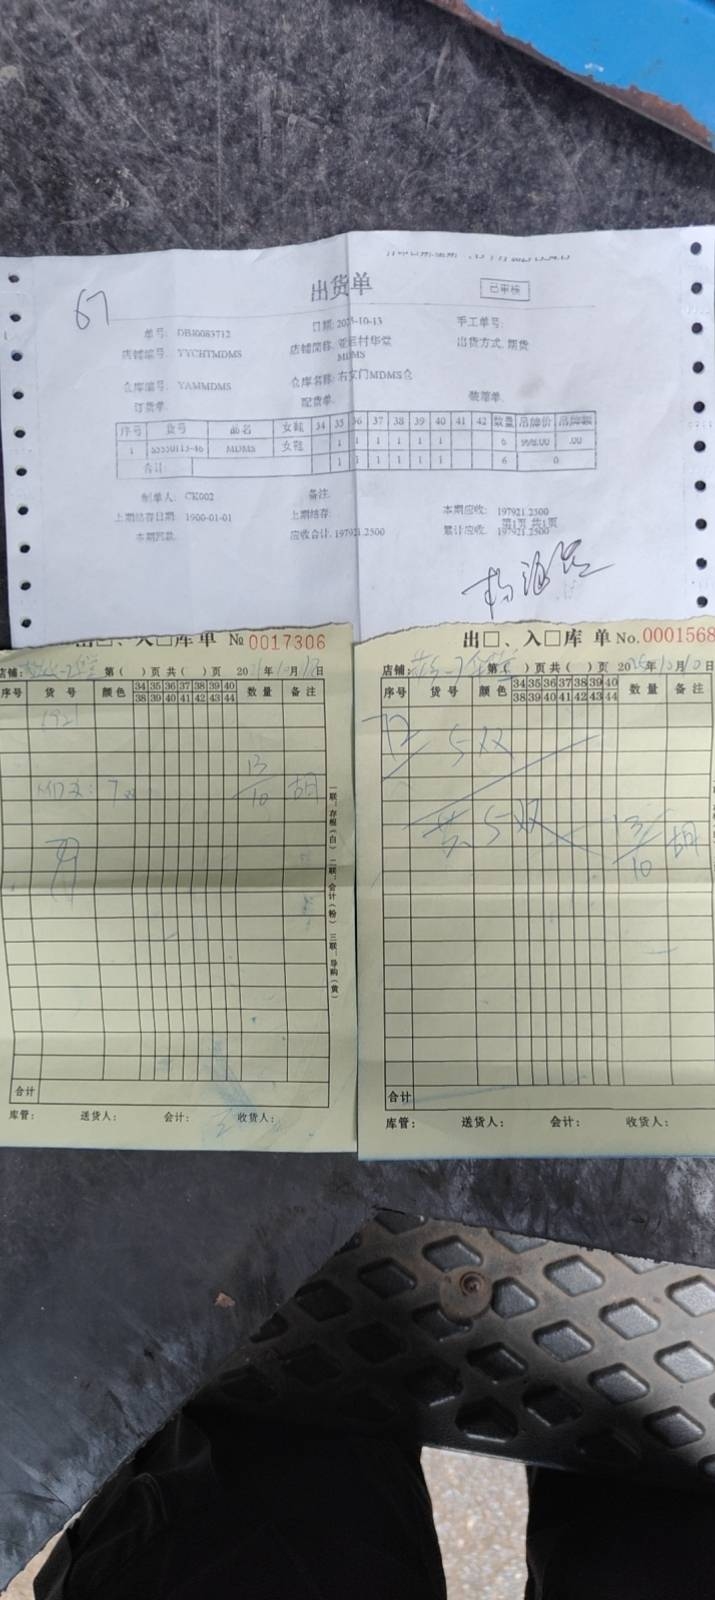 67
出货单
已审核
单号: DBJ0083712
日期: 2025-10-13
手工单号:
店铺编号: YYCHTMDMS
店铺简称: 亚运村华堂MDMS
出货方式: 期货
仓库编号: YAMMDMS
仓库名称: 右安门MDMS仓
订货单:
配货单:
装箱单:
序号 货号 品名 女鞋 34 35 36 37 38 39 40 41 42 数量 吊牌价 吊牌额
1 MDMS 女鞋 1 1 1 1 1 1 6 998.00 .00
合计: 1 1 1 1 1 1 6 0
制单人: CK002
备注:
本期应收: 197921.2500
上期结存日期: 1900-01-01
上期结存:
第1页 共1页
本期回款:
应收合计: 197921.2500
累计应收: 197921.2500
出□、入□库单 № 0017306
店铺: 第( )页 共( )页 20 年10月 日
序号 货号 颜色 34 35 36 37 38 39 40 数量 备注
38 39 40 41 42 43 44
13/10 胡
一联:存根(白) 二联:会计(粉) 三联:导购(黄)
合计
库管: 送货人: 会计: 收货人:
出□、入□库单 No. 0001568
店铺: 第( )页 共( )页 2025年10月10日
序号 货号 颜色 34 35 36 37 38 39 40 数量 备注
38 39 40 41 42 43 44
5双
共5双 13/10 胡
合计
库管: 送货人: 会计: 收货人: